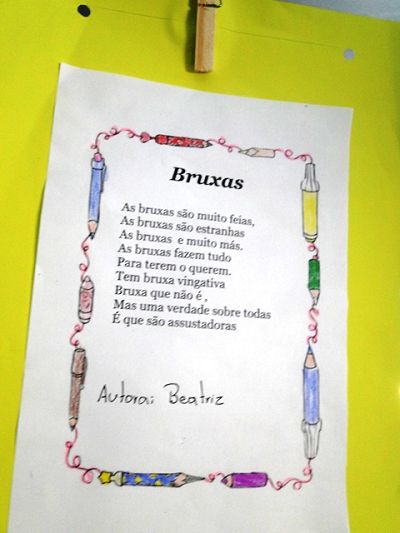 Bruxas
As bruxas são muito feias,
As bruxas são estranhas
As bruxas e muito más.
As bruxas fazem tudo
Para terem o querem.
Tem bruxa vingativa
Bruxa que não é ,
Mas uma verdade sobre todas
É que são assustadoras
Autora: Beatriz